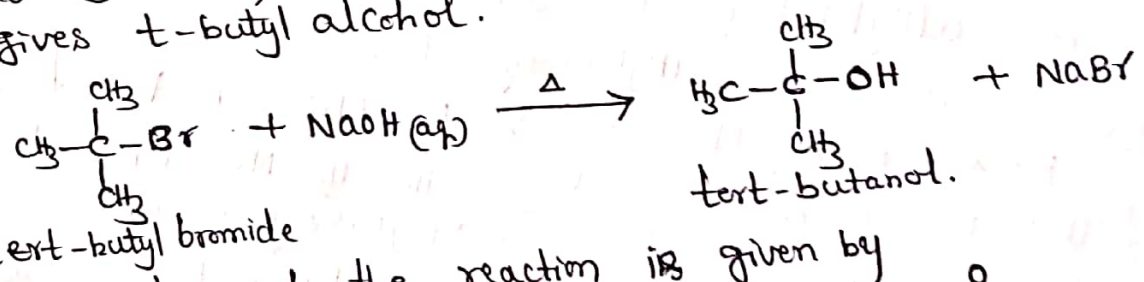 gives t-butyl alcohol.
CH3 CH3
CH3-C-Br + NaOH (aq) Δ H3C-C-OH + NaBr
CH3 CH3
ert-butyl bromide tert-butanol.
the reaction is given by